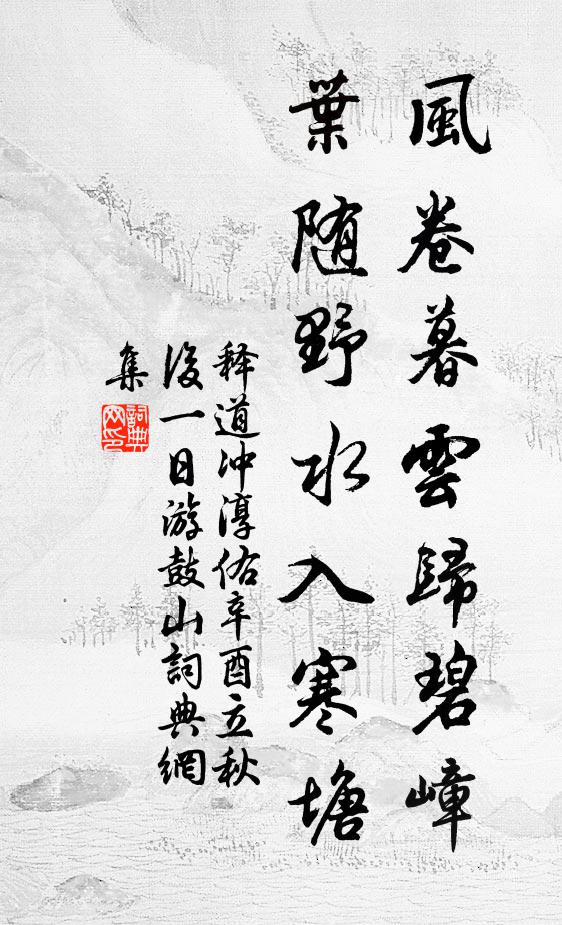 風卷暮雲歸碧嶂
葉随野水入寒塘
释道冲淳佑辛酉立秋
後一日游鼓山詞典網
集
詞典
网印